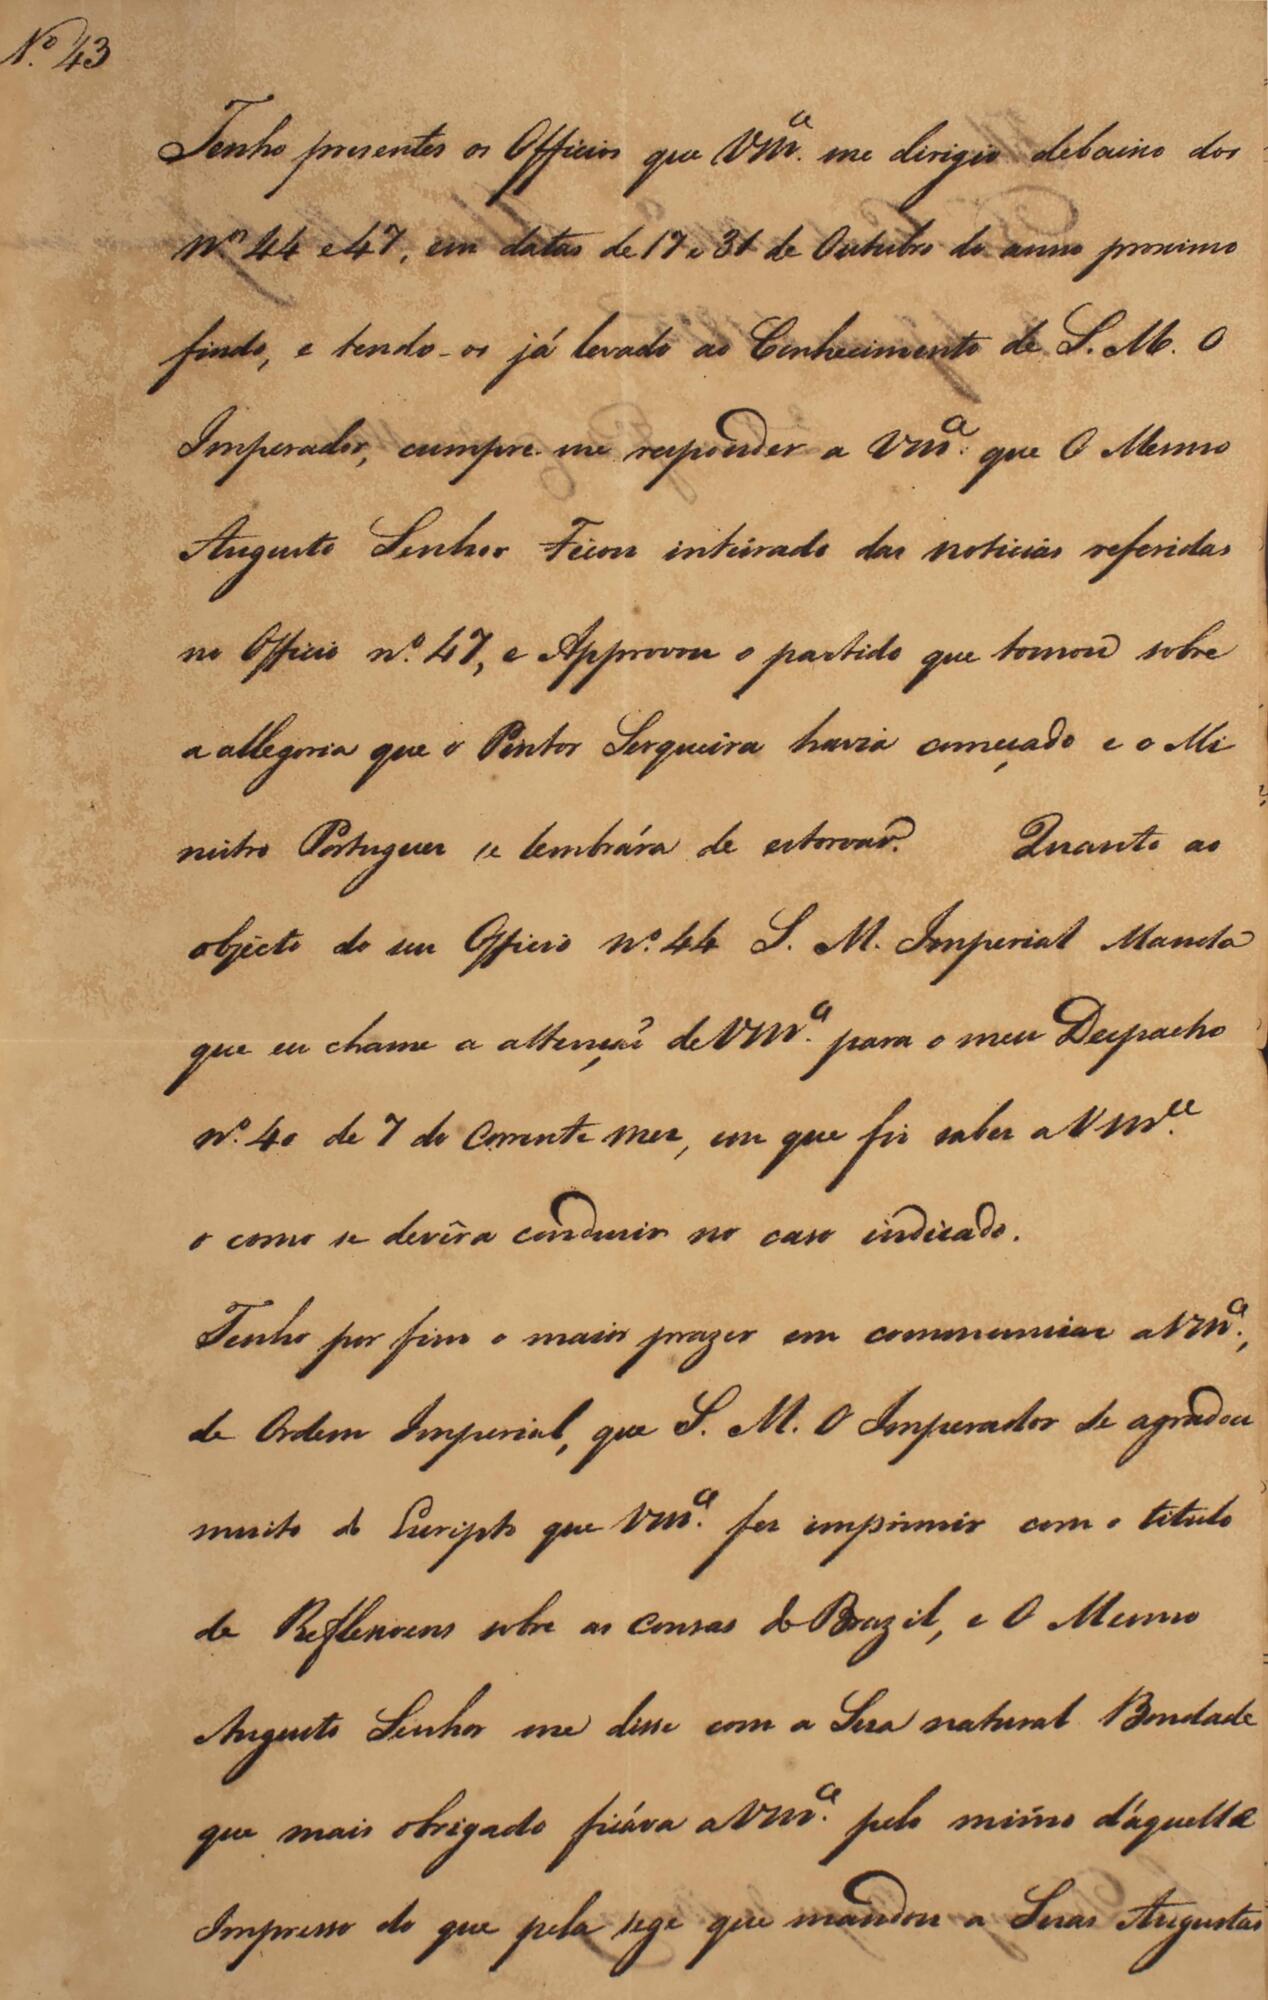 Nº 43
Tenho presentes os Officios que VMce. me dirigio debaixo dos
Nos 44 e 47, em datas de 17 e 31 de Outubro do anno proximo
findo, e tendo-os já levado ao Conhecimento de S. M. O
Imperador, cumpre-me responder a VMce. que O Mesmo
Augusto Senhor Ficou inteirado das noticias referidas
no Officio nº 47, e Approvou o partido que tomou sobre
a allegoria que o Pintor Serqueira havia começado e o Mi
nistro Portuguez se lembrára de estorvar. Quanto ao
objecto do seu Officio Nº 44 S. M. Imperial Manda
que eu chame a attenção de VMce. para o meu Despacho
Nº 40 de 7 do Corrente mez, em que fiz saber a VMce.
o como se devêra conduzir no caso indicado.
Tenho por fim o maior prazer em communicar a VMce.,
de Ordem Imperial, que S. M. O Imperador Se agradou
muito do Escripto que VMce. fez imprimir com o titulo
de Reflexoens sobre as Cousas do Brazil, e O Mesmo
Augusto Senhor me disse com a Sua natural Bondade
que mais obrigado ficáva a VMce. pelo mimo d'aquelle
Impresso do que pela sege que mandou a Suas Augustas